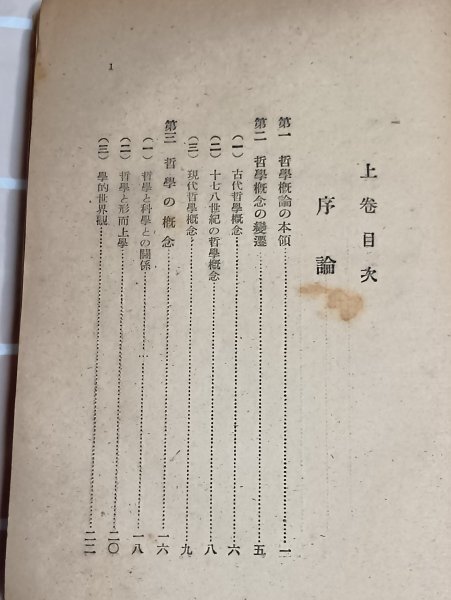 上卷目次
序論
第一 哲學概論の本領……一
第二 哲學概念の變遷……五
(一) 古代哲學概念……六
(二) 十七八世紀の哲學概念……八
(三) 現代哲學概念……九
第三 哲學の概念……一六
(一) 哲學と科學との關係……一八
(二) 哲學と形而上學……二〇
(三) 學的世界觀……二二
1